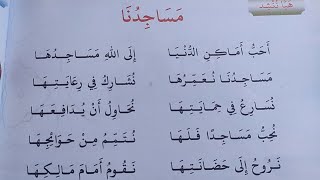 هَيَّا نُنْشِدْ
مَسَاجِدُنَا
أَحَبُّ أَمَاكِنِ الدُّنْيَا إِلَى اللهِ مَسَاجِدُهَا
مَسَاجِدُنَا نُعَمِّرُهَا نُشَارِكُ فِي رِعَايَتِهَا
نُسَارِعُ فِي حِمَايَتِهَا نُحَاوِلُ أَنْ يُدَافِعَهَا
نُحِبُّ مَسَاجِدًا فَلَهَا نُتَمِّمُ مِنْ حَوَائِجِهَا
نَرُوحُ إِلَى حَضَانَتِهَا نَقُومُ أَمَامَ مَالِكِهَا